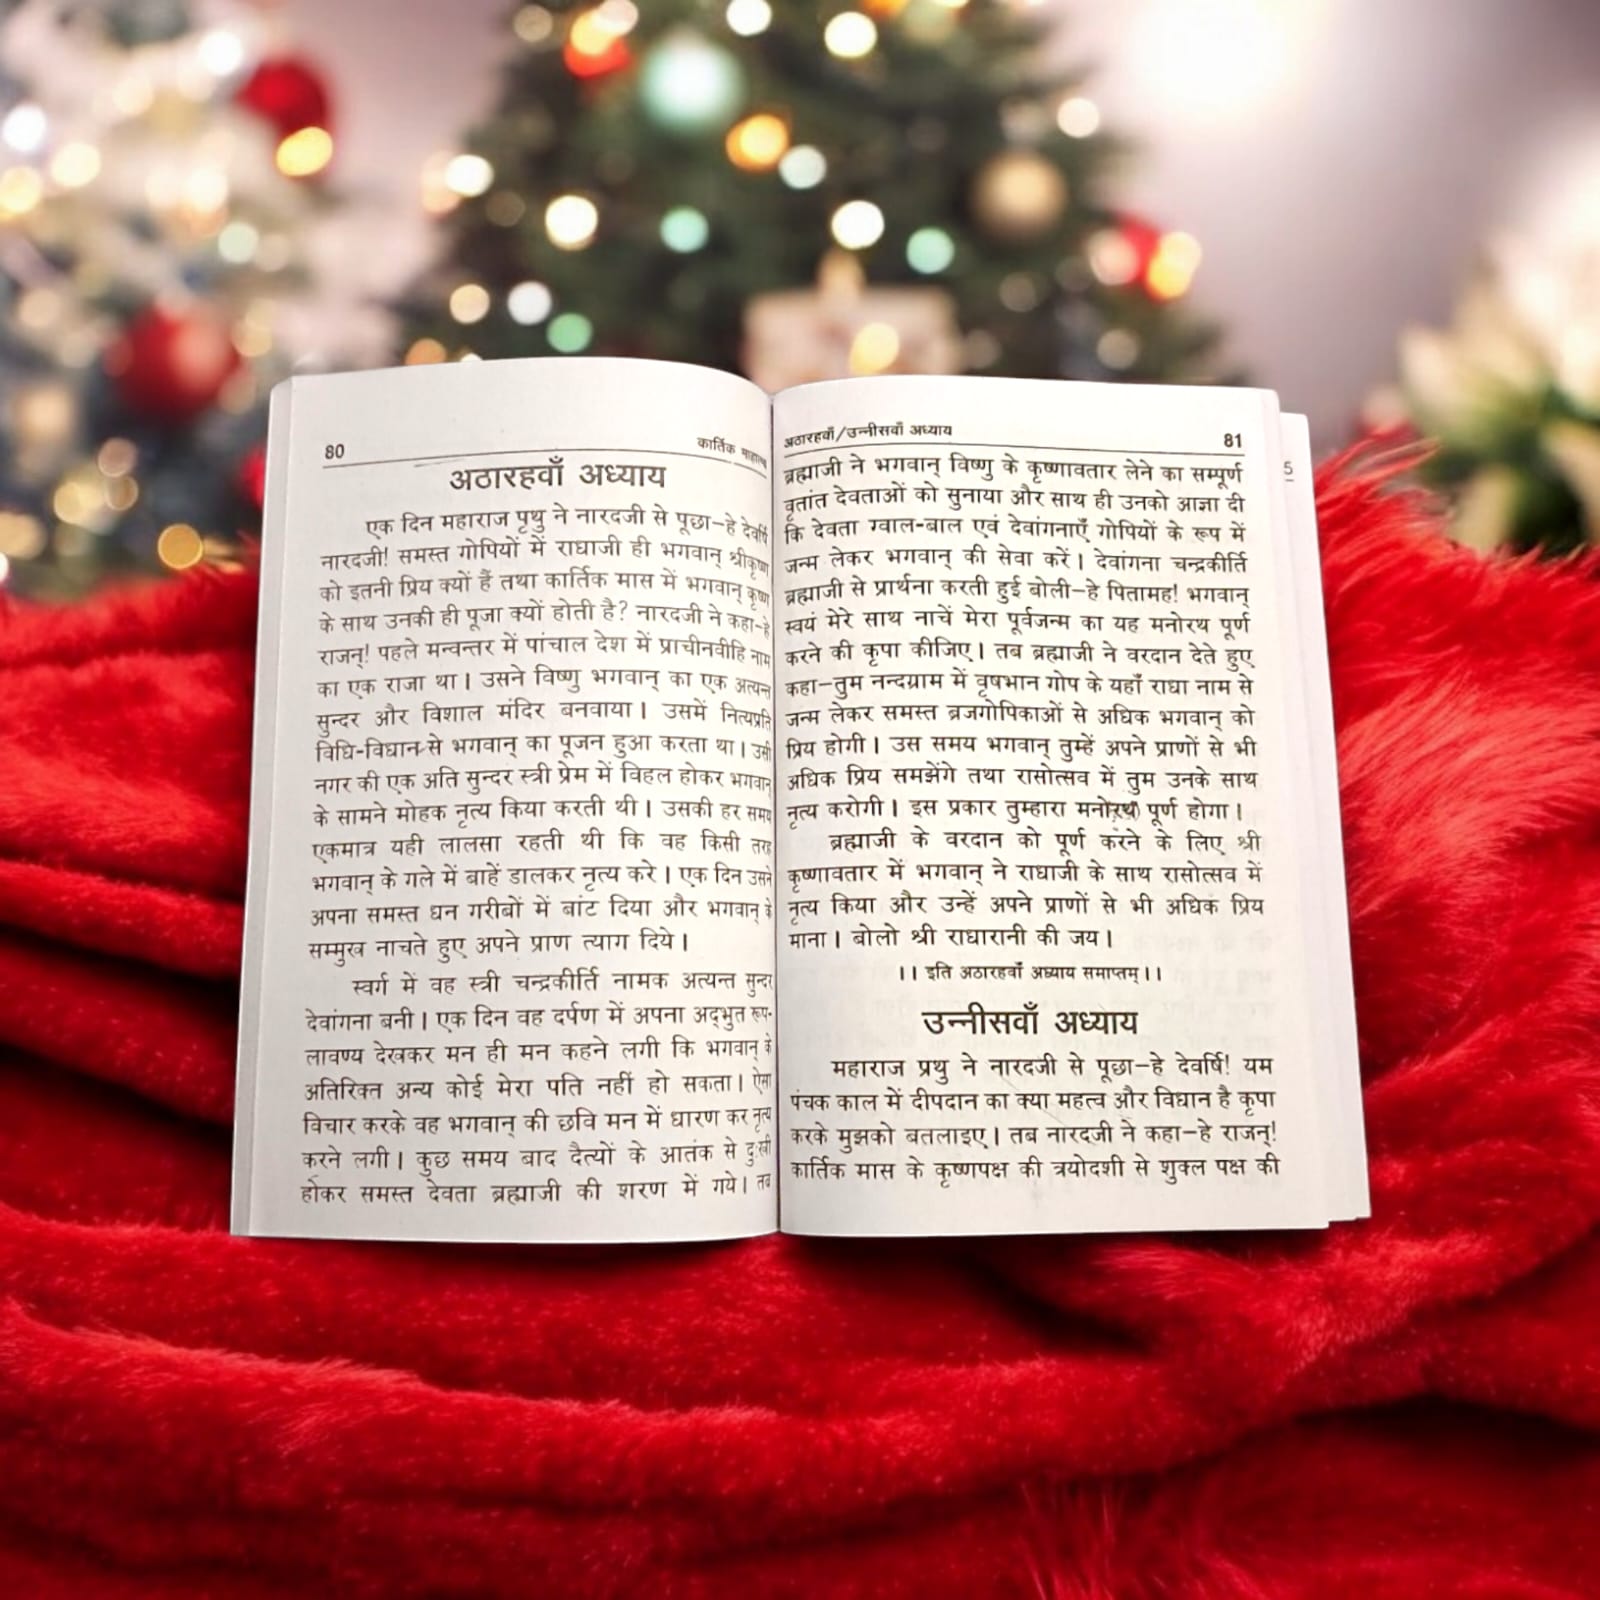 80
कार्तिक माहात्म्य
अठारहवाँ अध्याय
एक दिन महाराज पृथु ने नारदजी से पूछा–हे देवर्षि
नारदजी! समस्त गोपियों में राधाजी ही भगवान् श्रीकृष्ण
को इतनी प्रिय क्यों हैं तथा कार्तिक मास में भगवान् कृष्ण
के साथ उनकी ही पूजा क्यों होती है? नारदजी ने कहा–हे
राजन्! पहले मन्वन्तर में पांचाल देश में प्राचीनवीहि नाम
का एक राजा था। उसने विष्णु भगवान् का एक अत्यन्त
सुन्दर और विशाल मंदिर बनवाया। उसमें नित्यप्रति
विधि-विधान से भगवान् का पूजन हुआ करता था। उसी
नगर की एक अति सुन्दर स्त्री प्रेम में विहल होकर भगवान्
के सामने मोहक नृत्य किया करती थी। उसकी हर समय
एकमात्र यही लालसा रहती थी कि वह किसी तरह
भगवान् के गले में बाहें डालकर नृत्य करे। एक दिन उसने
अपना समस्त धन गरीबों में बांट दिया और भगवान् के
सम्मुख नाचते हुए अपने प्राण त्याग दिये।
स्वर्ग में वह स्त्री चन्द्रकीर्ति नामक अत्यन्त सुन्दर
देवांगना बनी। एक दिन वह दर्पण में अपना अद्भुत रूप-
लावण्य देखकर मन ही मन कहने लगी कि भगवान् के
अतिरिक्त अन्य कोई मेरा पति नहीं हो सकता। ऐसा
विचार करके वह भगवान् की छवि मन में धारण कर नृत्य
करने लगी। कुछ समय बाद दैत्यों के आतंक से दुःखी
होकर समस्त देवता ब्रह्माजी की शरण में गये। तब
अठारहवाँ/उन्नीसवाँ अध्याय
81
ब्रह्माजी ने भगवान् विष्णु के कृष्णावतार लेने का सम्पूर्ण
वृतांत देवताओं को सुनाया और साथ ही उनको आज्ञा दी
कि देवता ग्वाल-बाल एवं देवांगनाएँ गोपियों के रूप में
जन्म लेकर भगवान् की सेवा करें। देवांगना चन्द्रकीर्ति
ब्रह्माजी से प्रार्थना करती हुई बोली–हे पितामह! भगवान्
स्वयं मेरे साथ नाचें मेरा पूर्वजन्म का यह मनोरथ पूर्ण
करने की कृपा कीजिए। तब ब्रह्माजी ने वरदान देते हुए
कहा–तुम नन्दग्राम में वृषभान गोप के यहाँ राधा नाम से
जन्म लेकर समस्त ब्रजगोपिकाओं से अधिक भगवान् को
प्रिय होगी। उस समय भगवान् तुम्हें अपने प्राणों से भी
अधिक प्रिय समझेंगे तथा रासोत्सव में तुम उनके साथ
नृत्य करोगी। इस प्रकार तुम्हारा मनोरथ पूर्ण होगा।
ब्रह्माजी के वरदान को पूर्ण करने के लिए श्री
कृष्णावतार में भगवान् ने राधाजी के साथ रासोत्सव में
नृत्य किया और उन्हें अपने प्राणों से भी अधिक प्रिय
माना। बोलो श्री राधारानी की जय।
।। इति अठारहवाँ अध्याय समाप्तम्।।
उन्नीसवाँ अध्याय
महाराज प्रथु ने नारदजी से पूछा–हे देवर्षि! यम
पंचक काल में दीपदान का क्या महत्व और विधान है कृपा
करके मुझको बतलाइए। तब नारदजी ने कहा–हे राजन्!
कार्तिक मास के कृष्णपक्ष की त्रयोदशी से शुक्ल पक्ष की
5